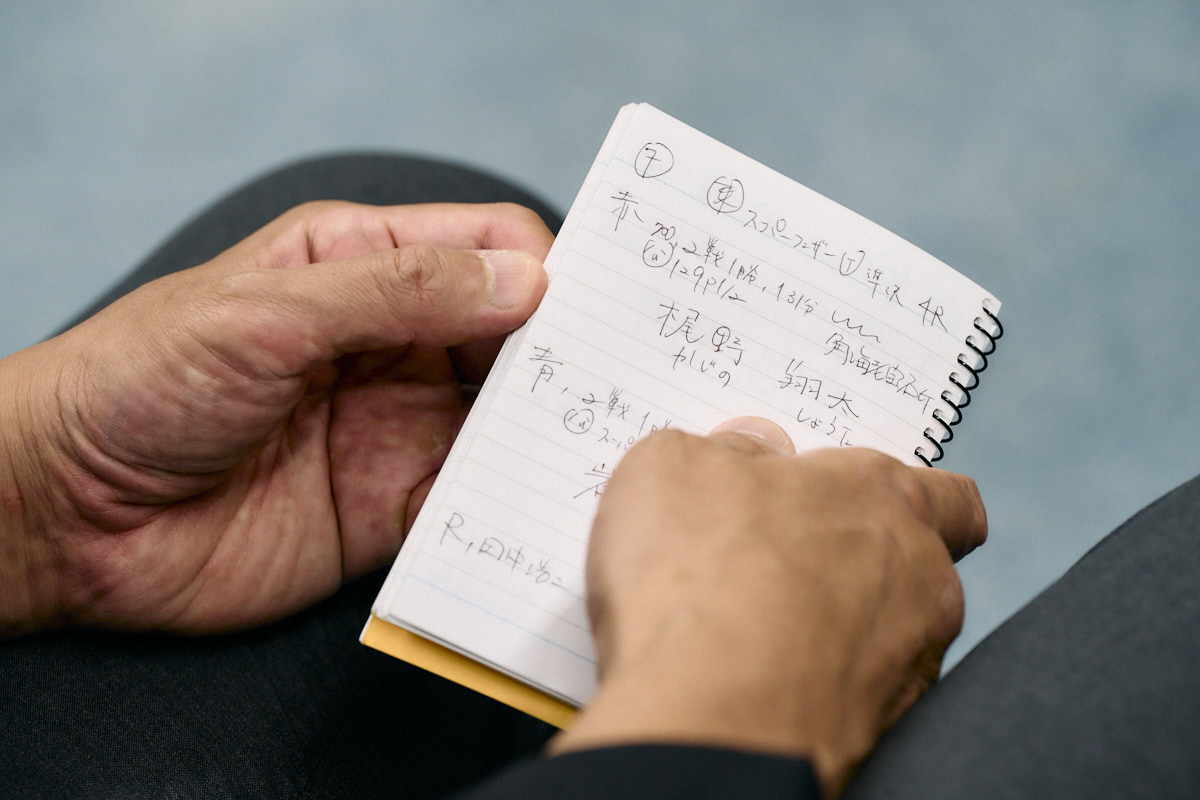 ⑦
東 スーパーフェザー T 準決 4R
赤、2戦1勝、
129p1/2
角海老宝石G
梶野 翔太
かじの しょうた
青、2戦1勝
スーパ
岩
R、田中浩二